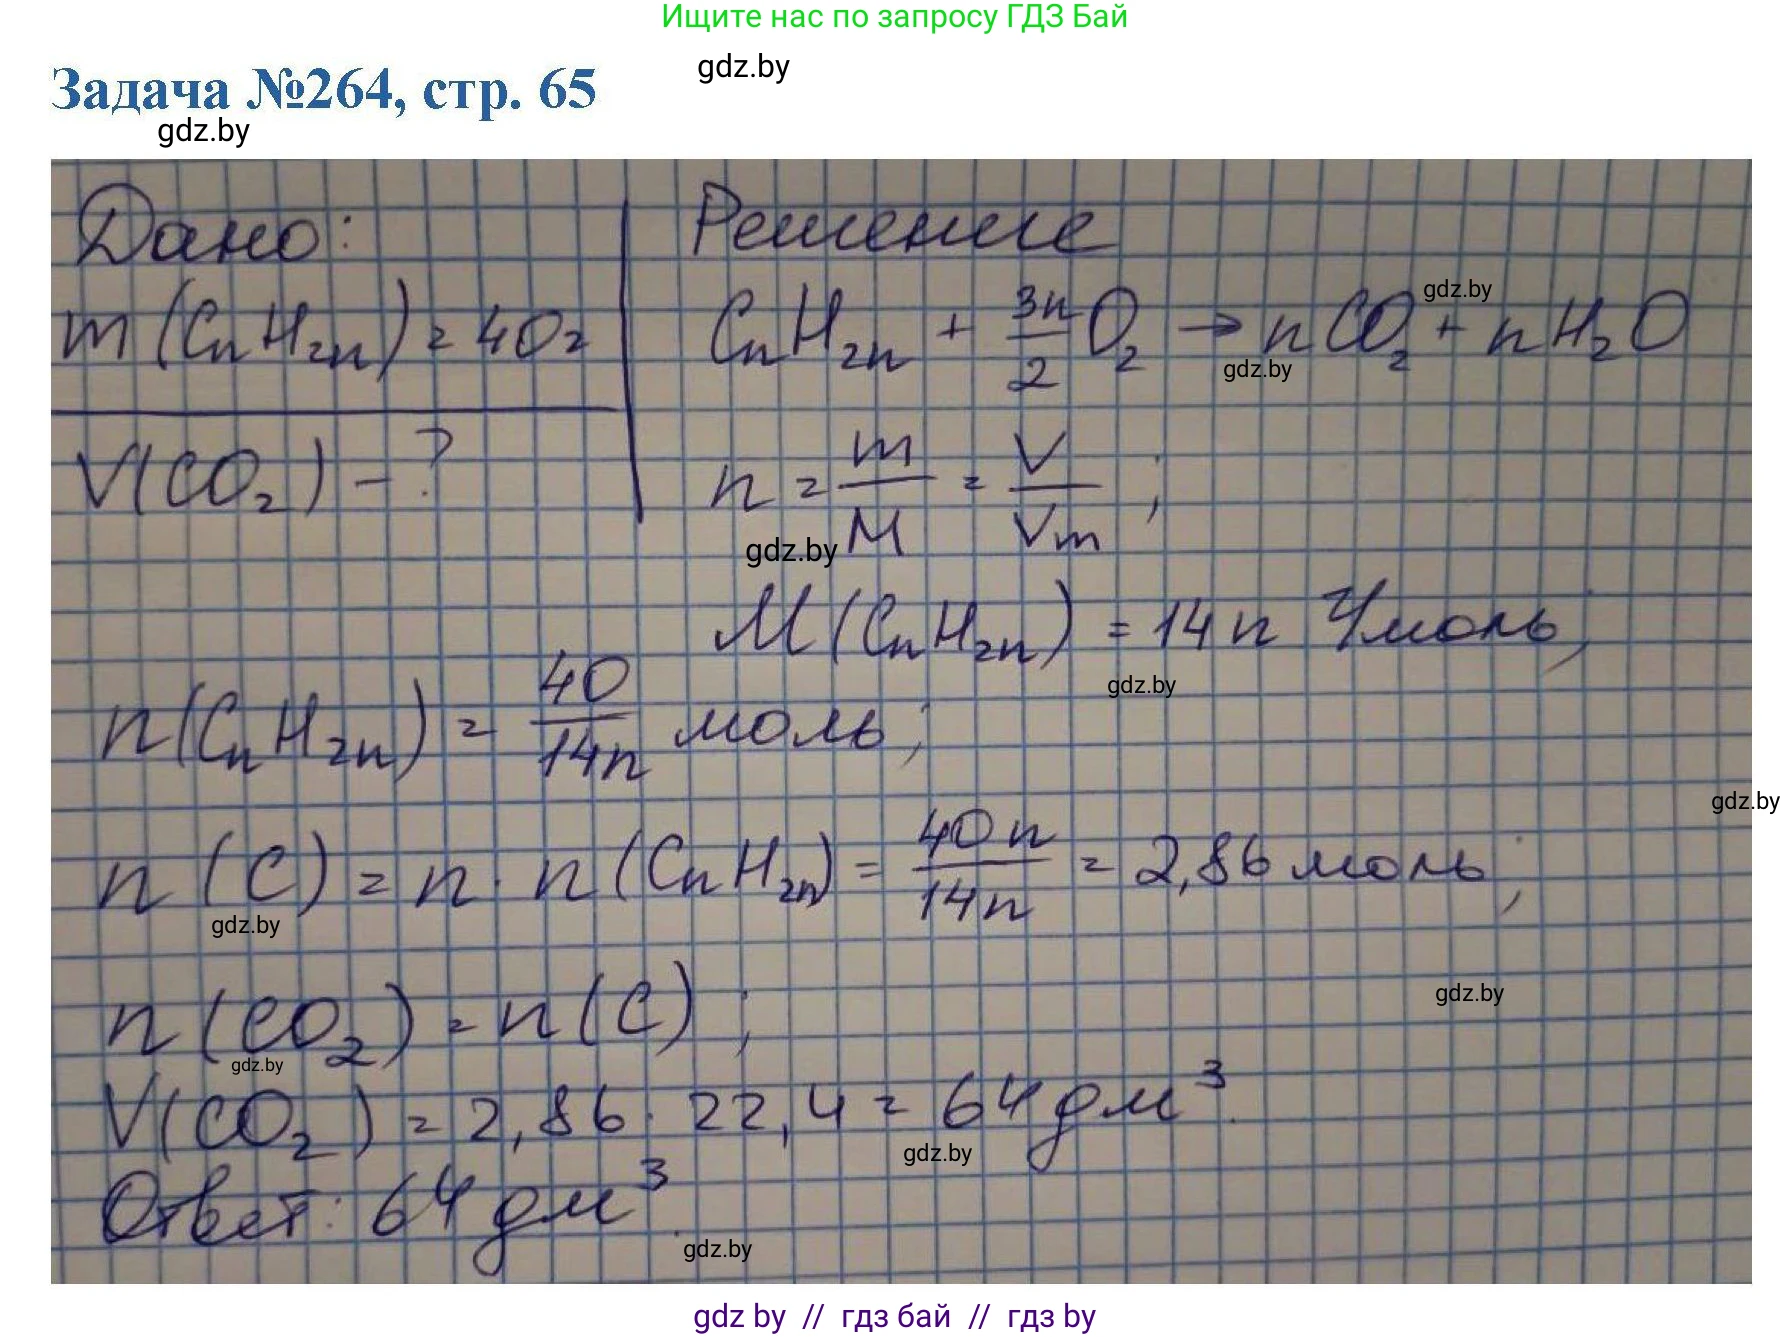 Ищите нас по запросу ГДЗ Бай
gdz.by
Задача №264, стр. 65
gdz.by
Дано: Решение
m (CnH2n) = 40г CnH2n + 3n/2 O2 → nCO2 + nH2O
gdz.by
gdz.by
V(CO2) - ? n = m/M = V/Vm ;
gdz.by
M (CnH2n) = 14n г/моль;
gdz.by
n(CnH2n) = 40/14n моль;
gdz.by
n (C) = n · n (CnH2n) = 40n/14n = 2,86 моль;
gdz.by
gdz.by
n (CO2) = n (C) ;
gdz.by
V(CO2) = 2,86 · 22,4 = 64 дм³.
gdz.by
Ответ: 64 дм³.
gdz.by
gdz by // гдз бай // гдз by